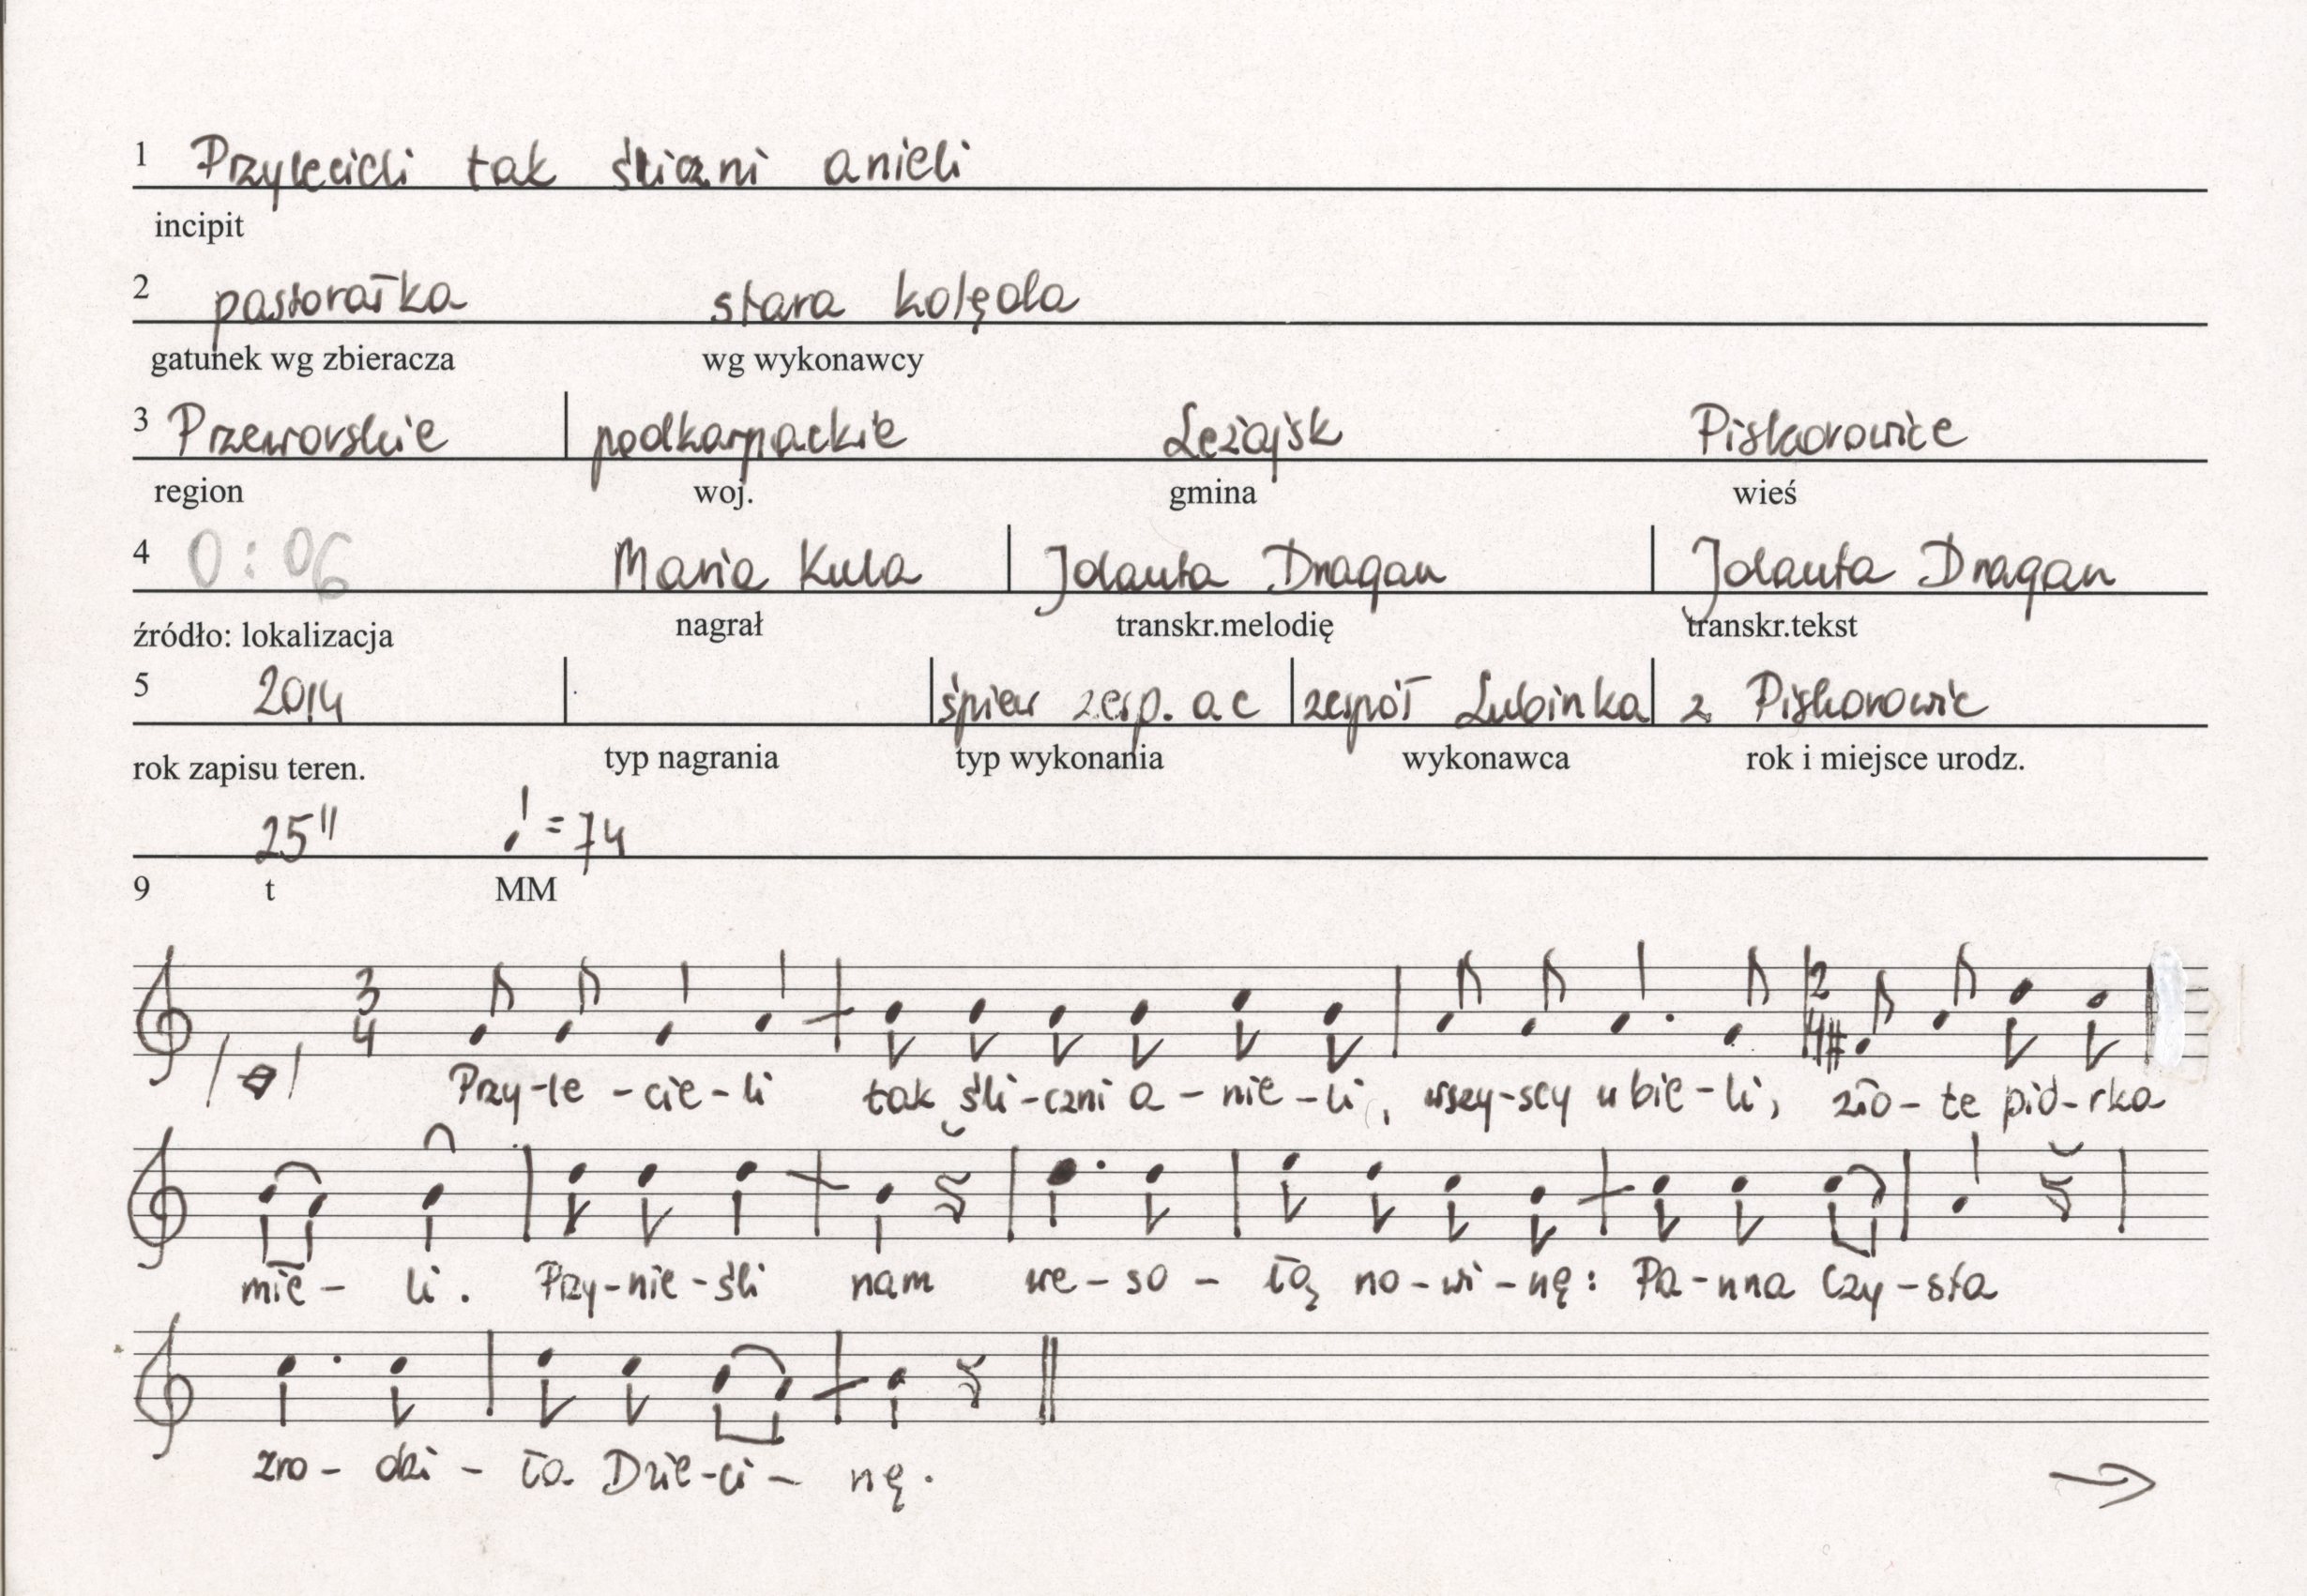 1 Przylecieli tak śliczni anieli
incipit
2 pastorałka stara kolęda
gatunek wg zbieracza wg wykonawcy
3 Przeworskie podkarpackie Leżajsk Piskorowice
region woj. gmina wieś
4 0:06 Maria Kula Jolanta Dragan Jolanta Dragan
źródło: lokalizacja nagrał transkr.melodię transkr.tekst
5 2014 śpiew zesp. a c zespół Lubinka z Piskorowic
rok zapisu teren. typ nagrania typ wykonania wykonawca rok i miejsce urodz.
25" ♩ = 74
9 t MM
3 2
4 4
Przy-le-cie-li tak śli-czni a-nie-li, wszy-scy u bie-li, zło-te pió-rka
mie-li. Przy-nie-śli nam we-so-łą no-wi-nę: Pa-nna Czy-sta
zro-dzi-ła Dzie-ci-nę.